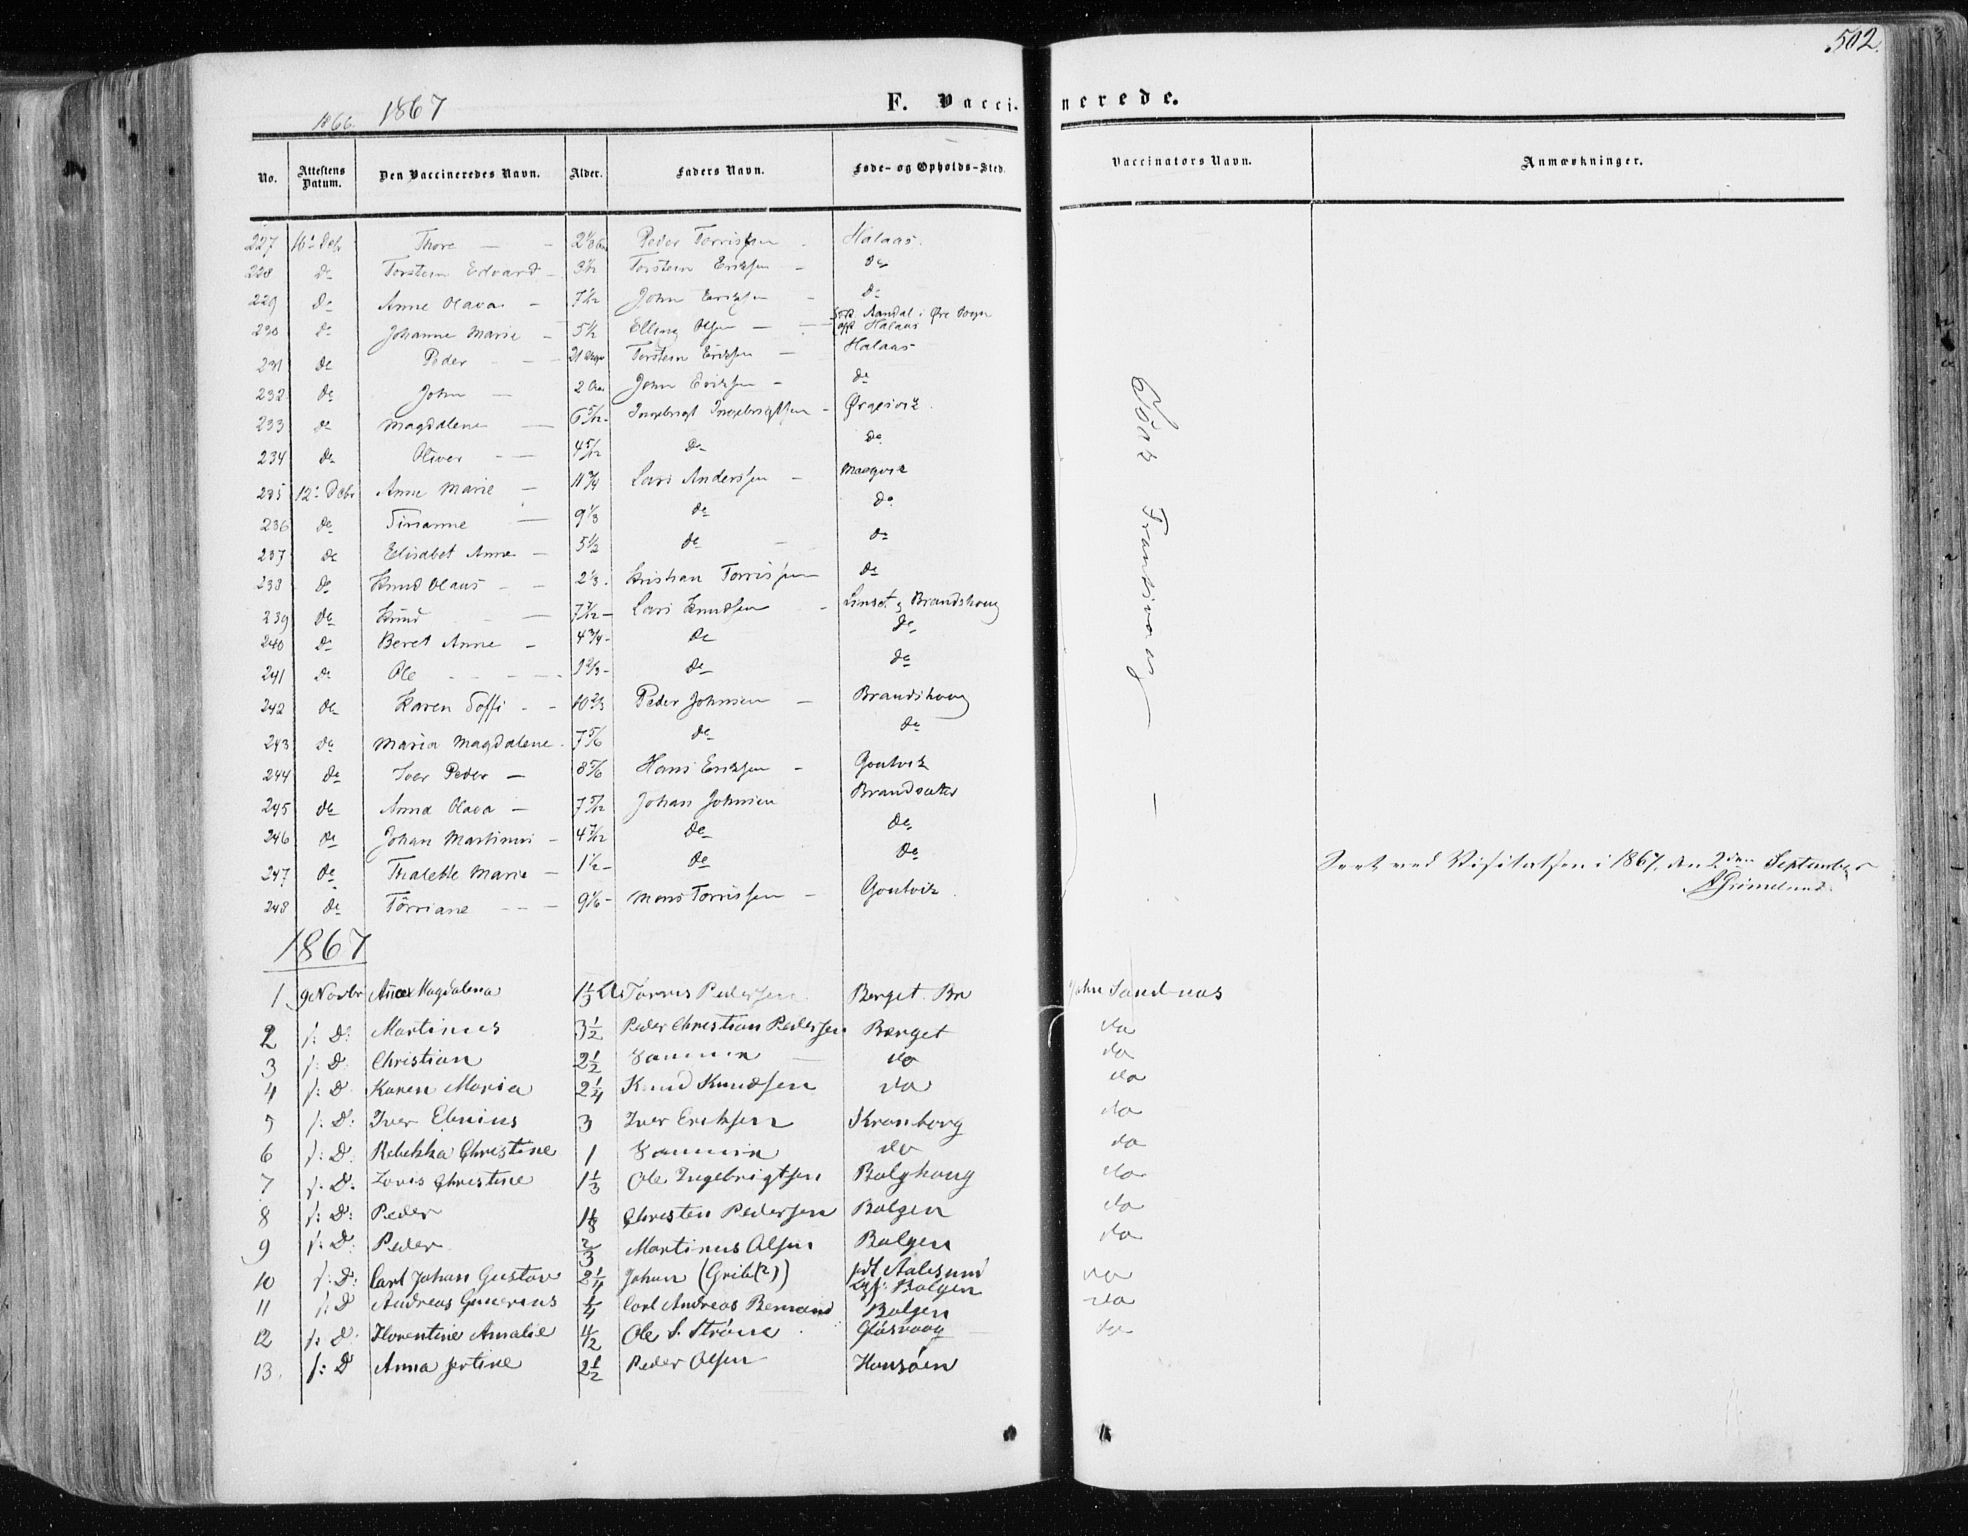 502.
1866. 1867
F. Vaccinerede.
No. Attestens Datum. Den Vaccineredes Navn. Alder. Faders Navn. Føde- og Opholds-Sted. Vaccinators Navn. Anmærkninger.
227 Thore — Peder Torrissen Halaas.
228 do Torstein Edvard — Torstein Eriksen — do
229 do Anne Olava — 7 1/2 John Eriksen — do
230 do Johanne Marie — 5 1/2 Elling Olsen — Aandal i Øre Sogn Halaas
231 do Peder — Torstein Eriksen — Halaas
232 do John — 2 Aar John Eriksen — do
233 do Magdalene — 6 5/12 Ingebrigt Ingebrigtsen — Ørgisvik
234 do Oliver — 4 5/12 do do
235 12 Decbr Anne Marie — 11 3/4 Lars Anderssen — Magvik
236 do Sirianne — 9 1/3 do do
237 do Elisabet Anne — 5 1/2 do do
238 do Knud Olaus — 2 1/3 Kristian Torrissen do
239 do Knud — 7 7/12 Lars Knudsen — Linset og Brandshoug
240 do Beret Anne — 4 3/4 do do
241 do Ole — do do
242 do Karen Soffi — 10 2/3 Peder Johnsen — Brandshoug
243 do Maria Magdalene 7 5/6 do do
244 do Iver Peder — 8 5/6 Hans Eriksen — Goutvik
245 do Anna Olava — 7 5/12 Johan Johnsen Brandsæter
246 do Johan Martinus — 4 7/12 do do
247 do Thalette Marie — 1 1/2 do do
248 do Törriane — 9 1/6 Mons Torrissen — Goutvik
Seet ved Visitatsen i 1867, den 2den September
Grimelund
1867
1. 9 Novbr Anne Magdalena 1 1/3 Torres Pedersen Berget. John Sandnæs
2 s: D: Martinus 3 1/2 Peder Christian Pedersen Berget do
3 s: D: Christian 2 1/2 Sammen — do do
4 s: D Karen Maria 2 1/4 Knud Knudsen do do
5 s: D: Iver Elenius 3 Iver Eriksen Kronborg do
6 s: D: Rebekka Christine 1 Sammen do do
7 s: D. Lovis Christine 1 1/3 Ole Ingebrigtsen Bolghoug do
8 s: D: Peder 1 1/8 Christen Pedersen Bolgen do
9 s: D: Peder 2/3 Martinus Olsen Bolgen do
10 s: D: Carl Johan Gustav 2 1/4 Johan (Grib(?)) født Aalesund Bolgen do
11 s: D Andreas Gunerius 1/4 Carl Andreas Bolgen do
12 s: D: Florentine Amalie 4/2 Ole S. Strøme Glosvaag do
13. s: D Anna Jertine 2 1/2 Peder Olsen Honsøen